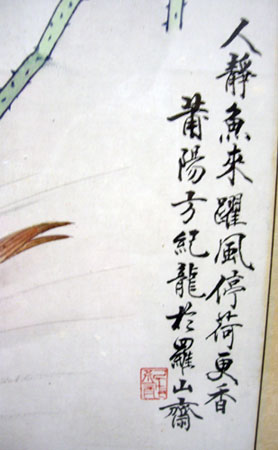 人靜魚來躍風停荷更香
莆陽方紀龍於羅山齋